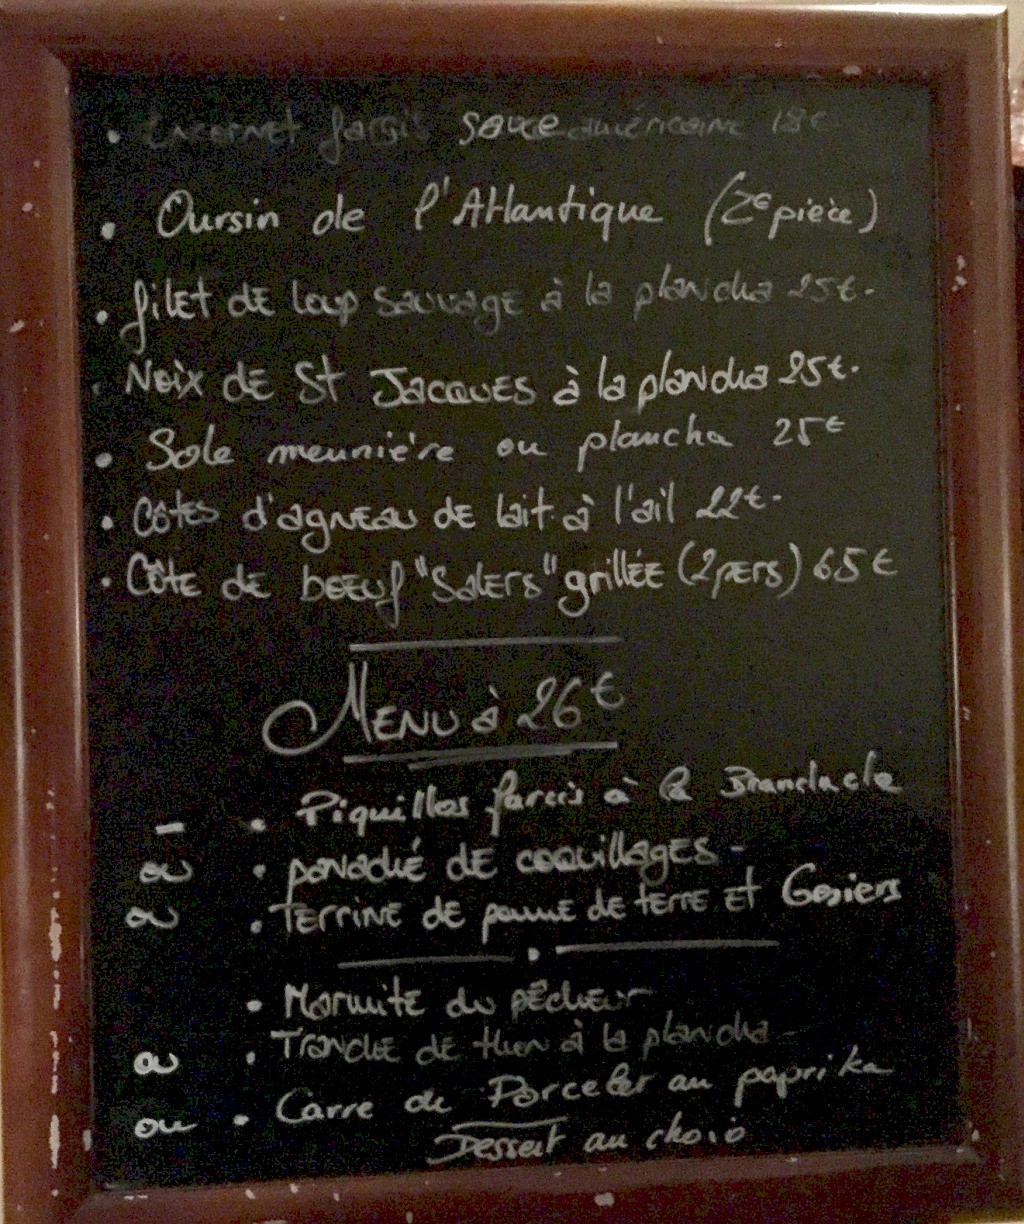 • Encornet farcis sauce américaine 18€
• Oursin de l'Atlantique (2€ pièce)
• filet de loup sauvage à la plancha 25€.
• Noix de St Jacques à la plancha 25€.
• Sole meunière ou plancha 25€
• Côtes d'agneau de lait à l'ail 22€.
• Côte de boeuf "Salers" grillée (2 pers) 65€
Menu à 26€
- • Piquillos farcis à la Brandade
ou • panaché de coquillages -
ou • Terrine de pomme de terre et Gesiers
• Marmite du pêcheur
ou • Tranche de thon à la plancha -
ou • Carre de Porcelet au paprika
Dessert au choix